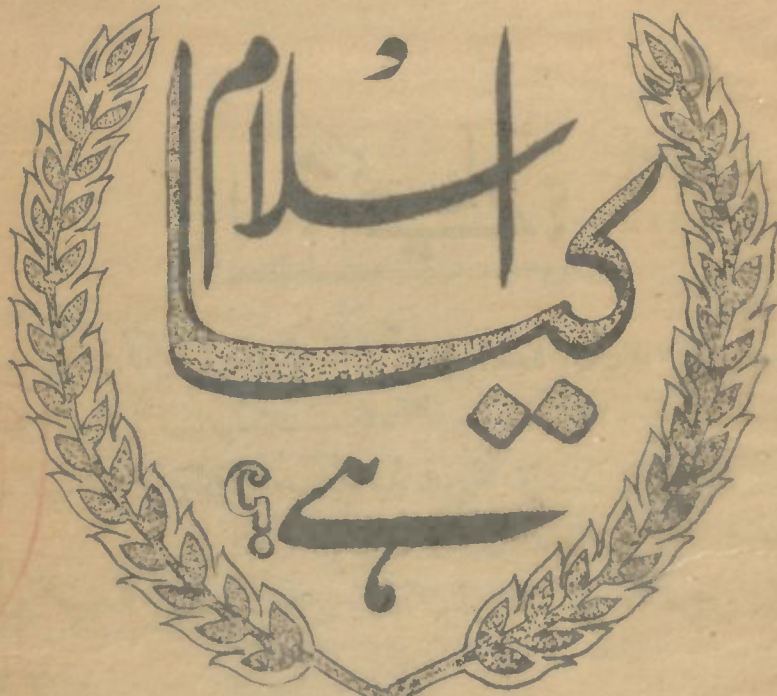 اسلام
کیا
ہے؟